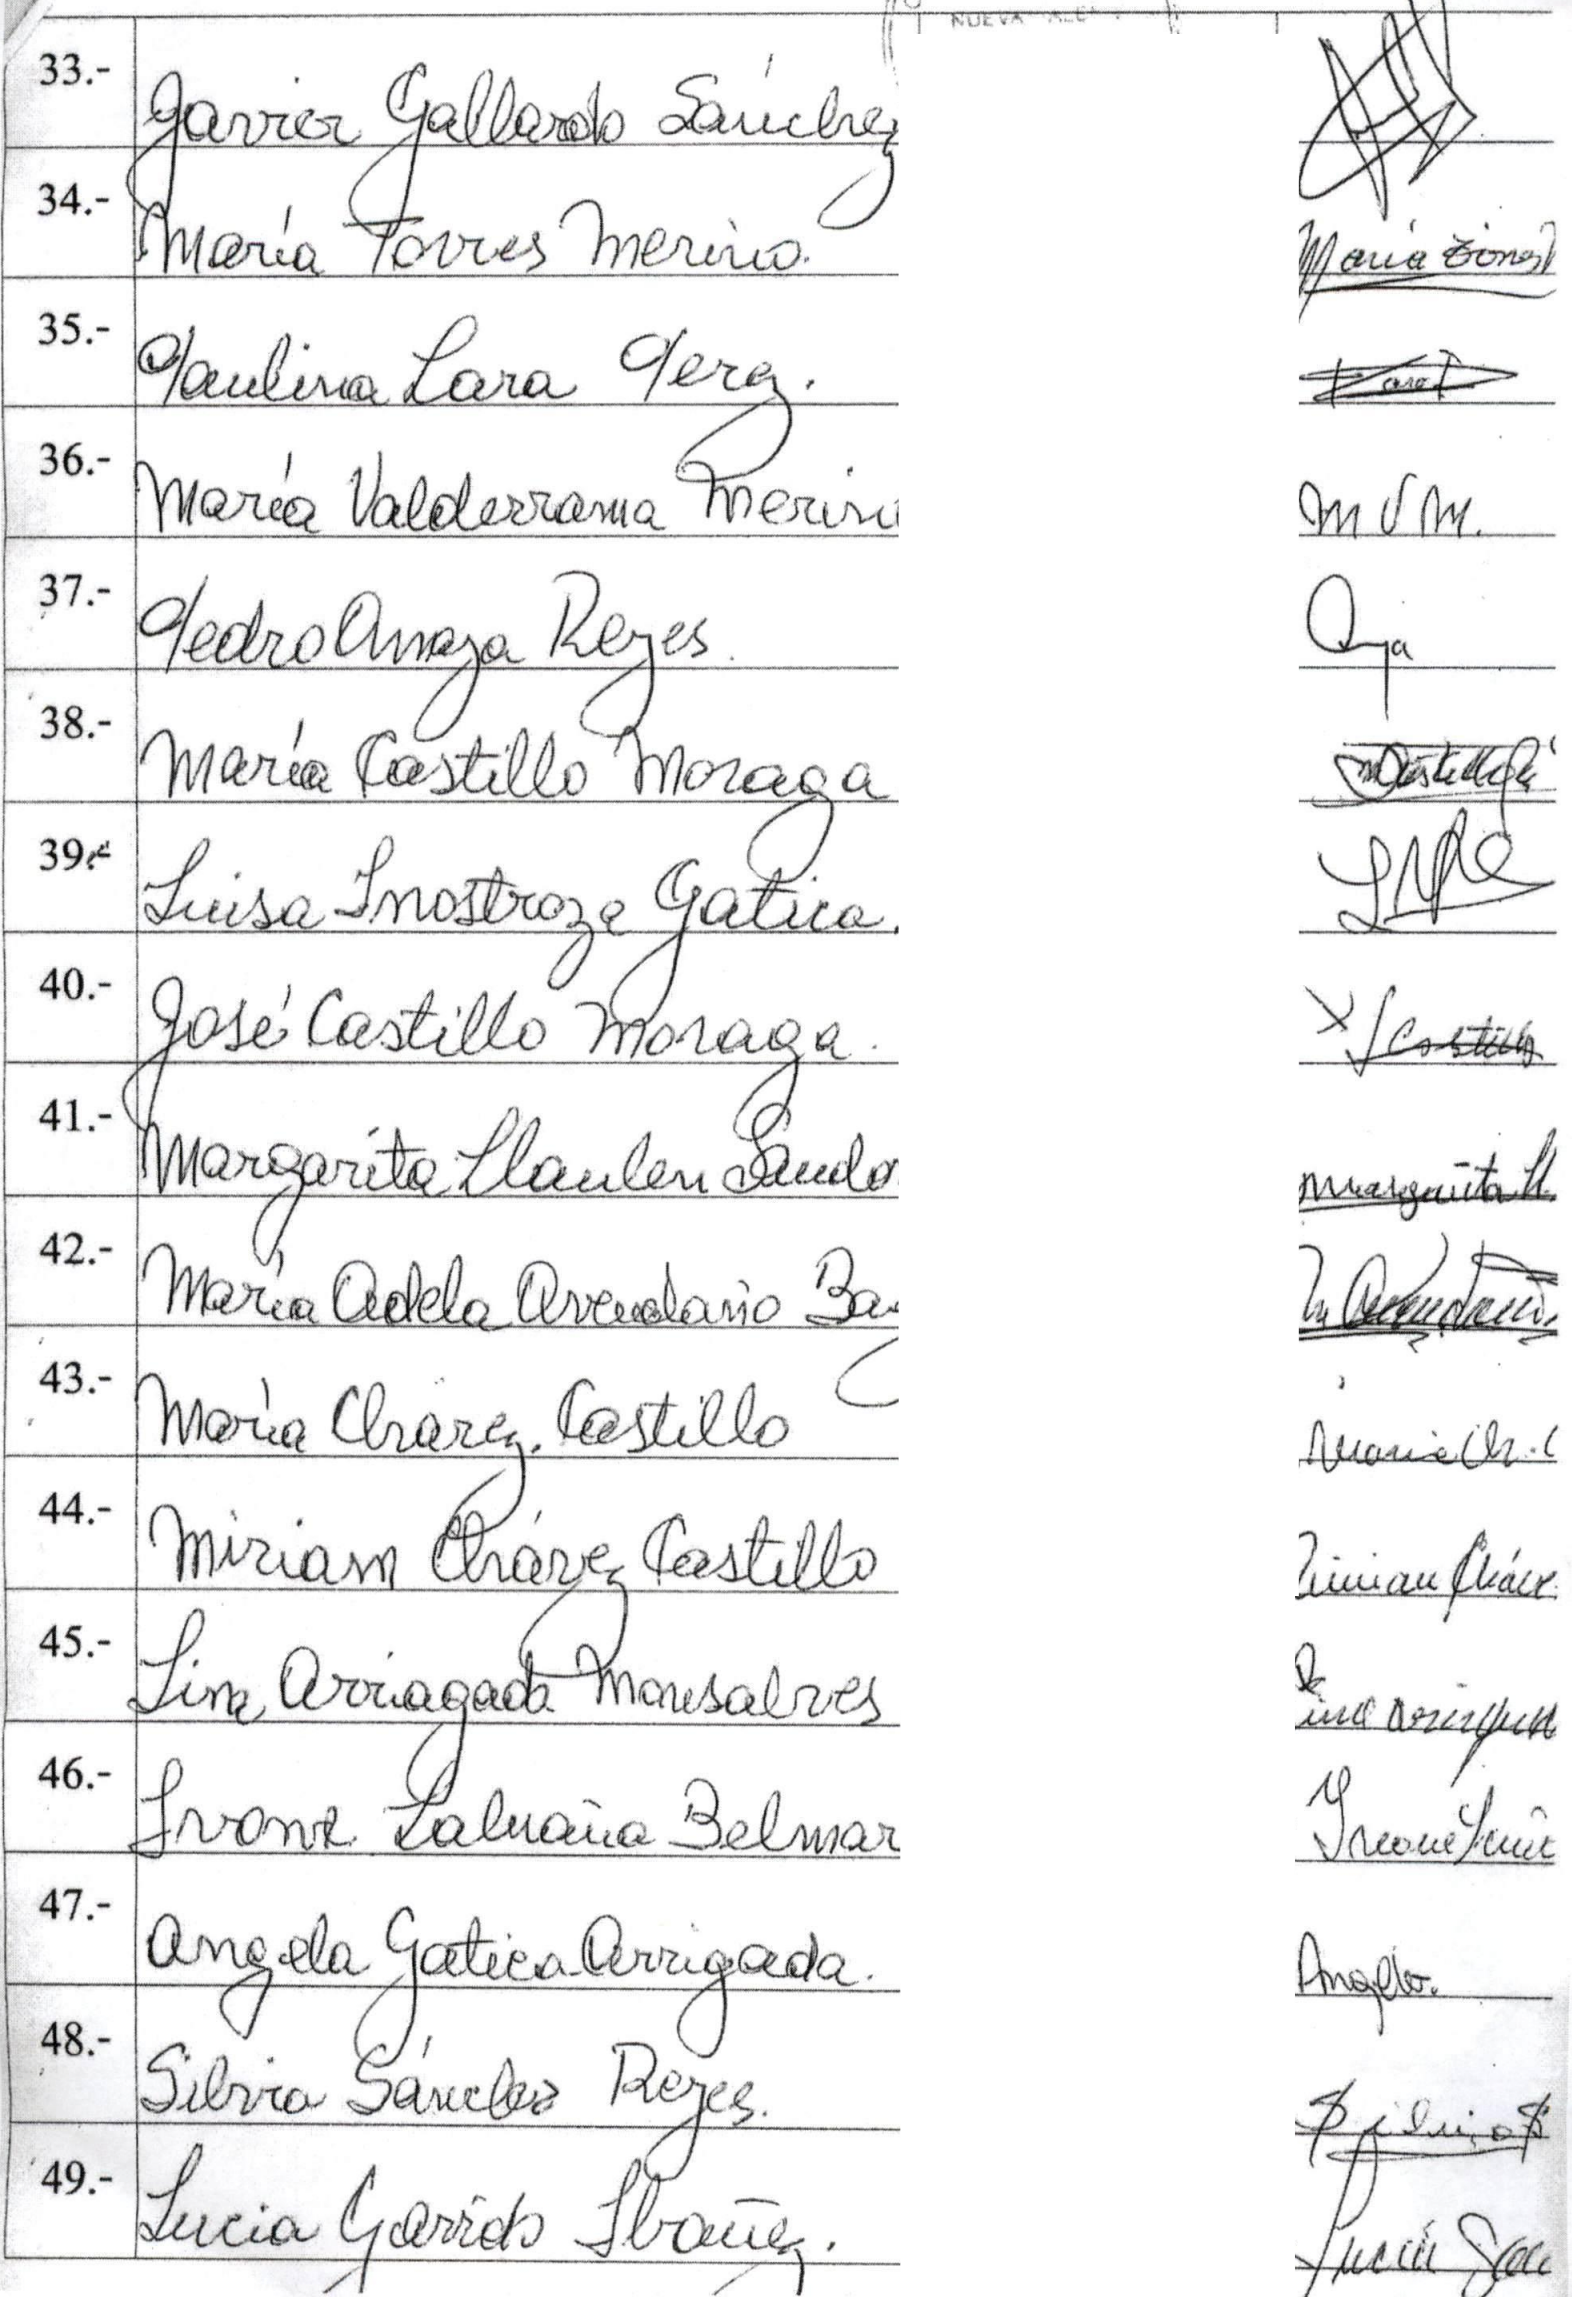 NUEVA
33.- Javier Gallardo Sánchez
34.- María Torres Merino.
María
35.- Paulina Lara Perez.
36.- María Valderrama Merino
M V M.
37.- Pedro Anaya Reyes.
38.- María Castillo Moraga
39.- Luisa Inostroza Gatica.
40.- José Castillo Moraga.
X J Castillo
41.- Margarita Llaulen Sando
Margarita Ll.
42.- María Adela Avendaño Ba
43.- María Chavez. Castillo
Maria Ch. C
44.- Miriam Chávez Castillo
Miriam Cháve
45.- Lina Arriagada Monsalves
46.- Ivone Labraña Belmar
47.- Angela Gatica Arrigada.
Angela.
48.- Silvia Sánchez Reyes.
Silvia S
49.- Lucia Garrido Ibañez.
Lucia Ga